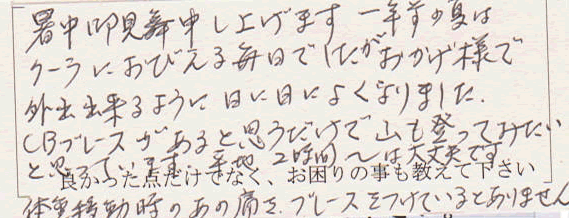 暑中御見舞申し上げます 一年前の夏は
クーラにおびえる毎日でしたがおかげ様で
外出出来るように日に日によくなりました.
CBブレースがあると思うだけで山も登ってみたい
と思っています. 平地2時間〜は大丈夫です
良かった点だけでなく、お困りの事も教えて下さい
体重移動時のあの痛さ. ブレースをつけているとありません